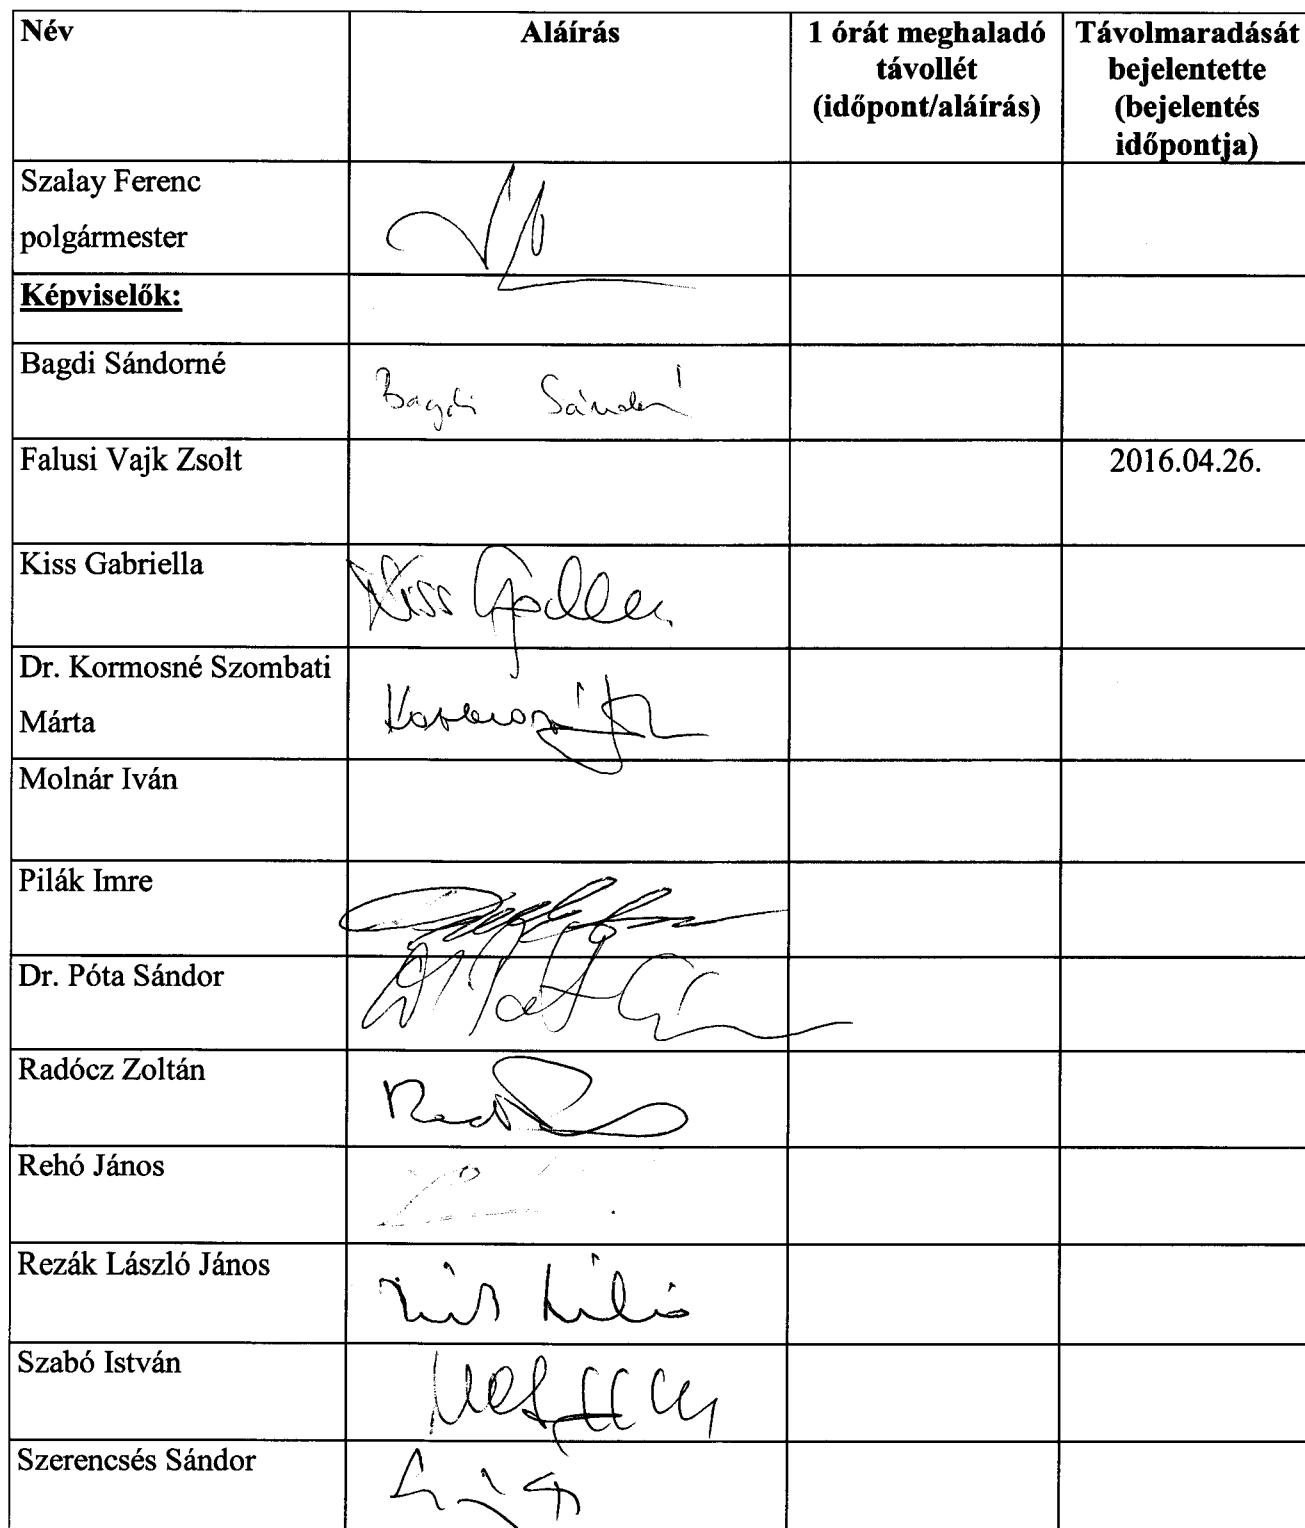 Név
Aláírás
1 órát meghaladó
távollét
(időpont/aláírás)
Távolmaradását
bejelentette
(bejelentés
időpontja)
Szalay Ferenc
polgármester
Képviselők:
Bagdi Sándorné
Bagdi Sándorné
Falusi Vajk Zsolt
2016.04.26.
Kiss Gabriella
Kiss
Dr. Kormosné Szombati
Márta
Molnár Iván
Pilák Imre
Dr. Póta Sándor
Radócz Zoltán
Rehó János
Rezák László János
Szabó István
Szerencsés Sándor